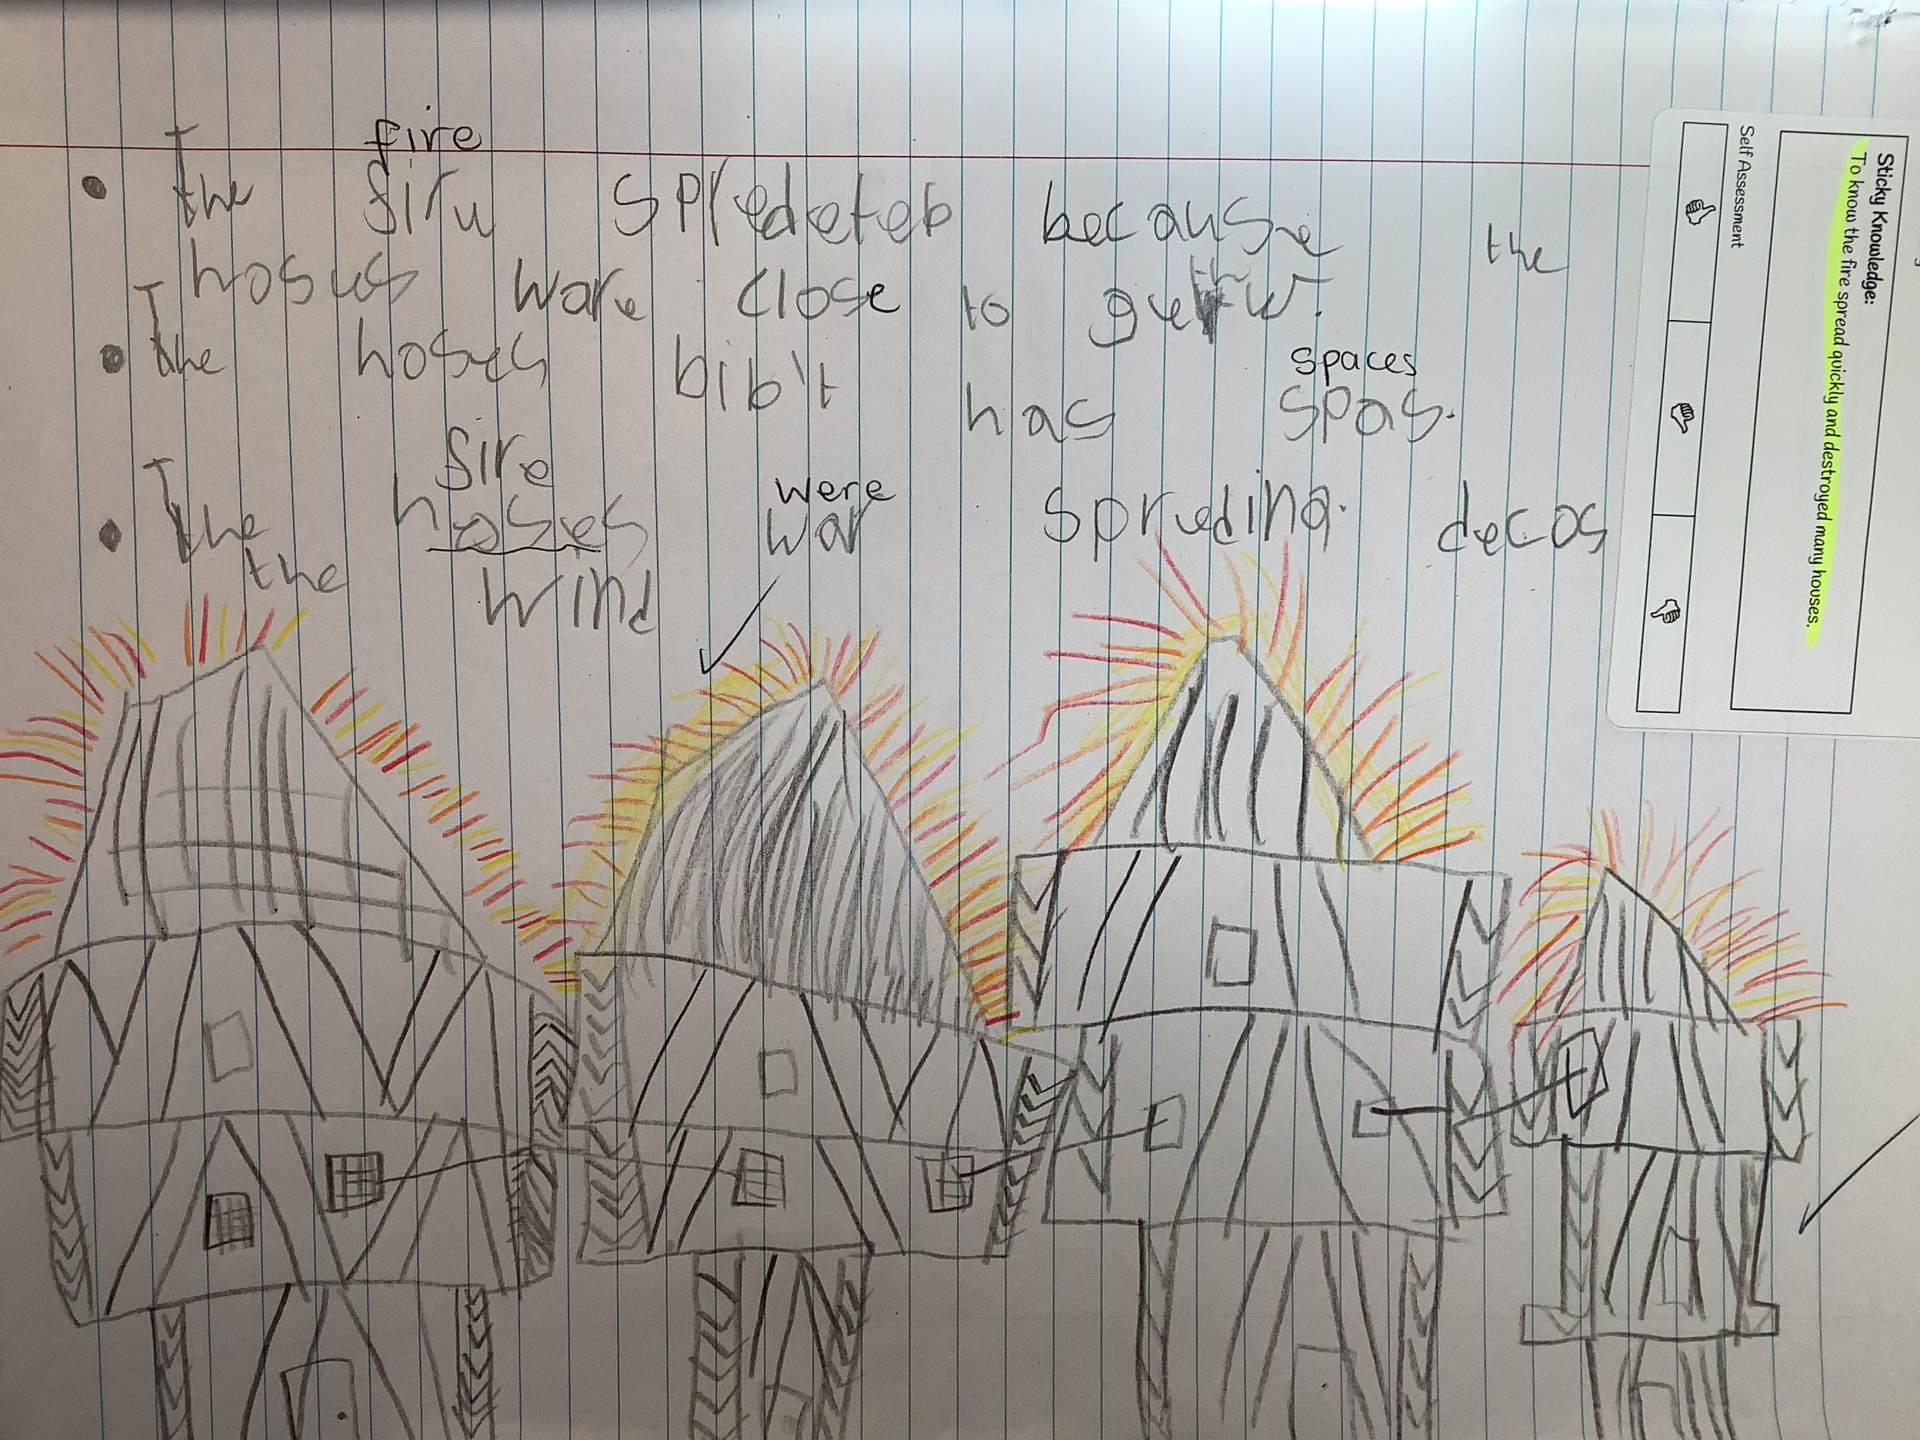 fire
• The firu spredeteb because the
hosues ware close to gethu.
spaces
• The hoses bib't has spas.
fire
were
• The hoses war spreding. decos
the wind
Sticky Knowledge:
To know the fire spread quickly and destroyed many houses.
Self Assessment